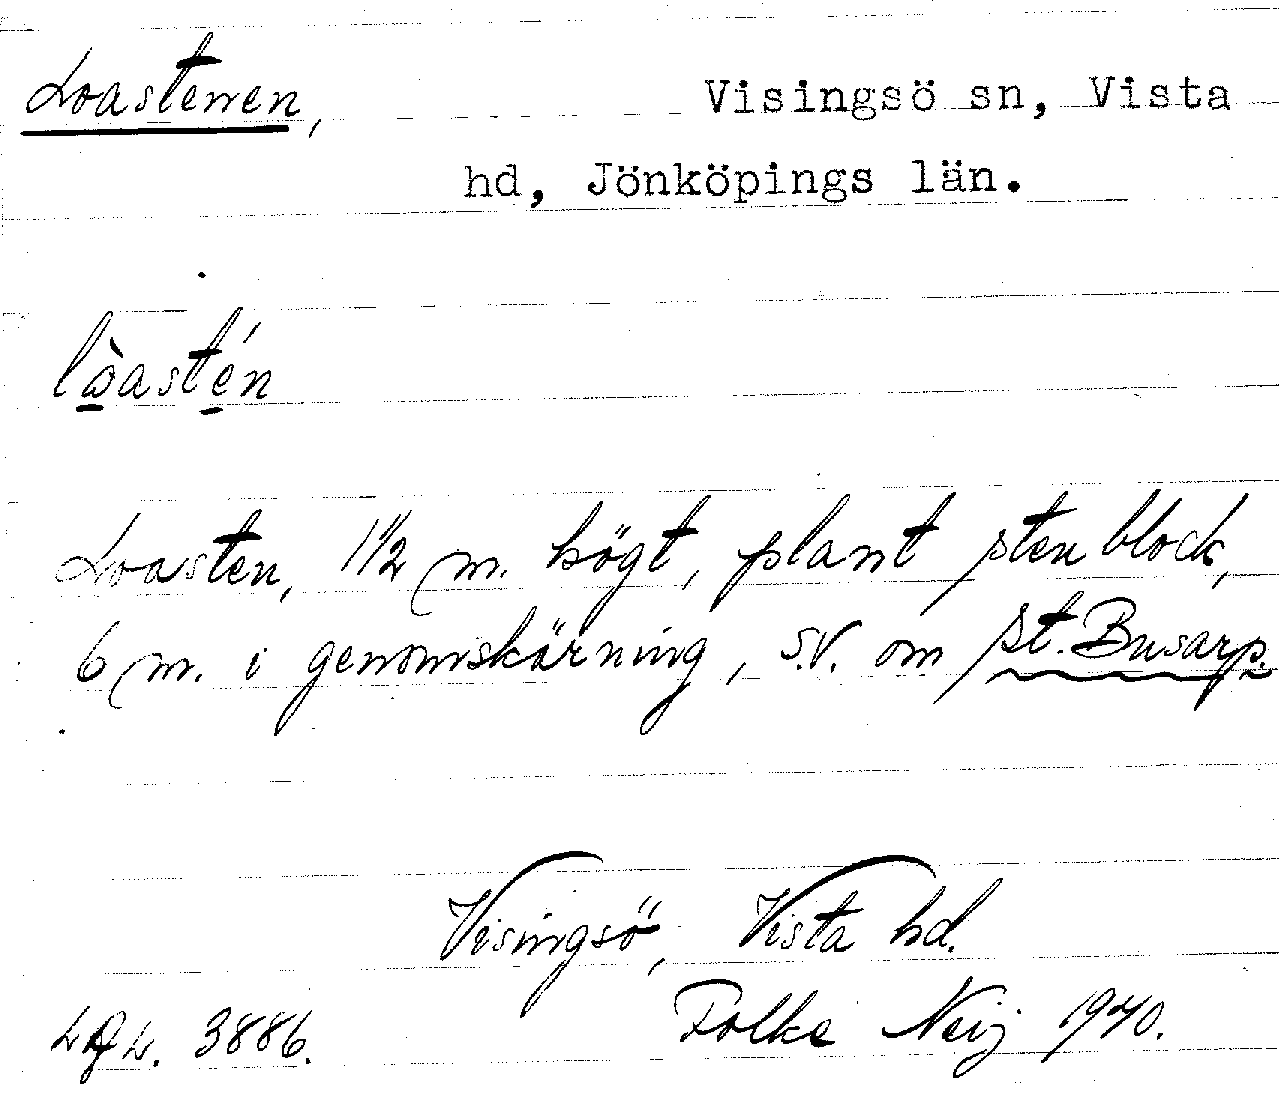 Loastenen, Visingsö sn, Vista
hd, Jönköpings län.
lòastén
Loasten, 1 1/2 m. högt, plant stenblock,
6 m. i genomskärning, s.v. om St. Busarp.
Visingsö, Vista hd.
3886. Folke Neij 1940.